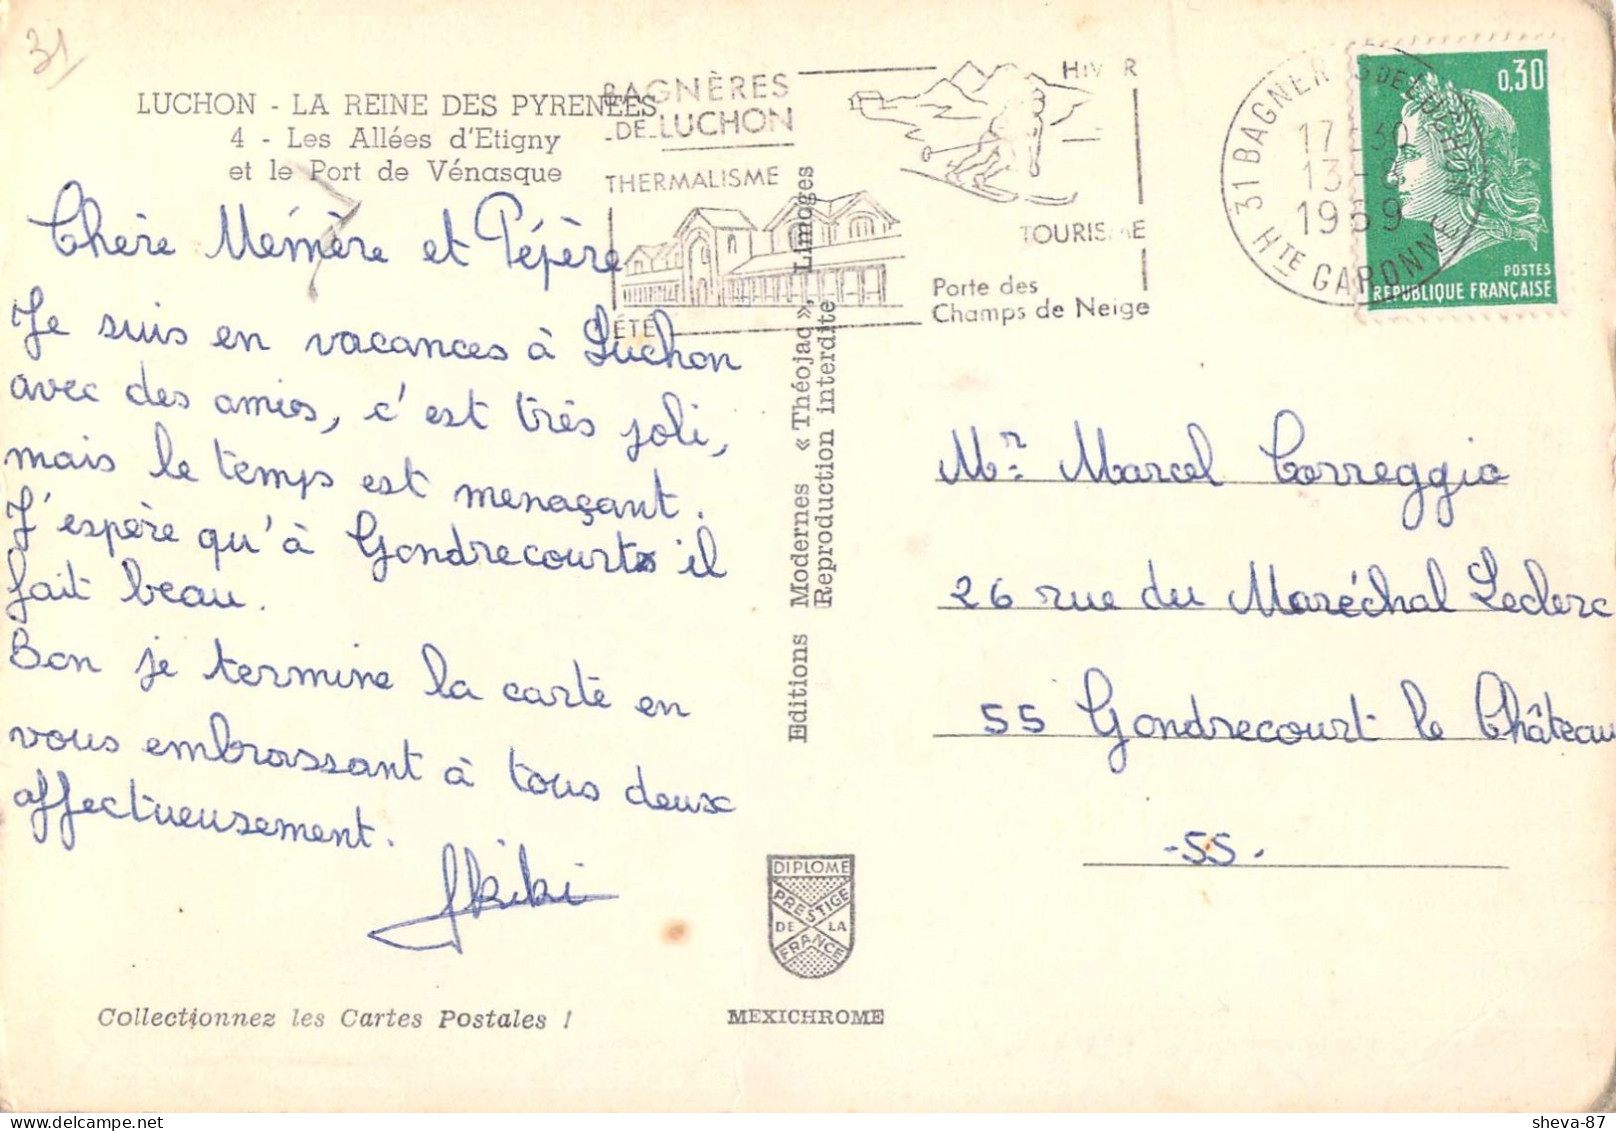 31
LUCHON - LA REINE DES PYRENEES
4 - Les Allées d'Etigny
et le Port de Vénasque
BAGNÈRES
-DE-LUCHON
THERMALISME
ÉTÉ
HIVER
TOURISME
Porte des
Champs de Neige
31 BAGNERES DE LUCHON
17-30
13-8
1969
HTE GARONNE
0,30
POSTES
REPUBLIQUE FRANÇAISE
Chère Mémère et Pépère
Je suis en vacances à Luchon
avec des amies, c'est très joli,
mais le temps est menaçant.
J'espère qu'à Gondrecourt il
fait beau.
Bon je termine la carte en
vous embrassant à tous deux
affectueusement.
kiki
Editions Modernes « Théojac », Limoges
Reproduction interdite
Mr Marcel Correggio
26 rue du Maréchal Leclerc
55 Gondrecourt le Château
-55.
DIPLOME
PRESTIGE
DE LA
FRANCE
Collectionnez les Cartes Postales !
MEXICHROME
sheva-87